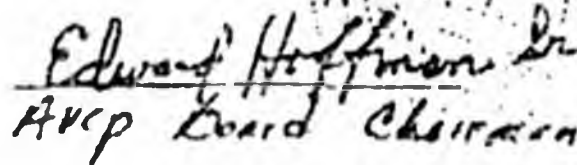 Edward Hoffman Sr
AVCP Board Chairman